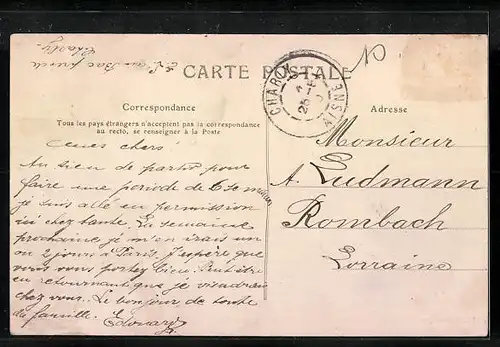 CARTE POSTALE
Correspondance
Tous les pays étrangers n'acceptant pas la correspondance
au recto, se renseigner à la Poste
Adresse
CHARLY
25
chers!
Au lieu de partir pour
faire une période de
je suis allé en permission
ici chez tante. La semaine
prochaine je m'en irais un
ou 2 jours à Paris. J'espère que
vous vous portez bien. Peut être
en retournant que je viendrai
chez vous. Le bonjour de toute
la famille. Edouard
Monsieur
A. Ludmann
Rombach
Lorraine